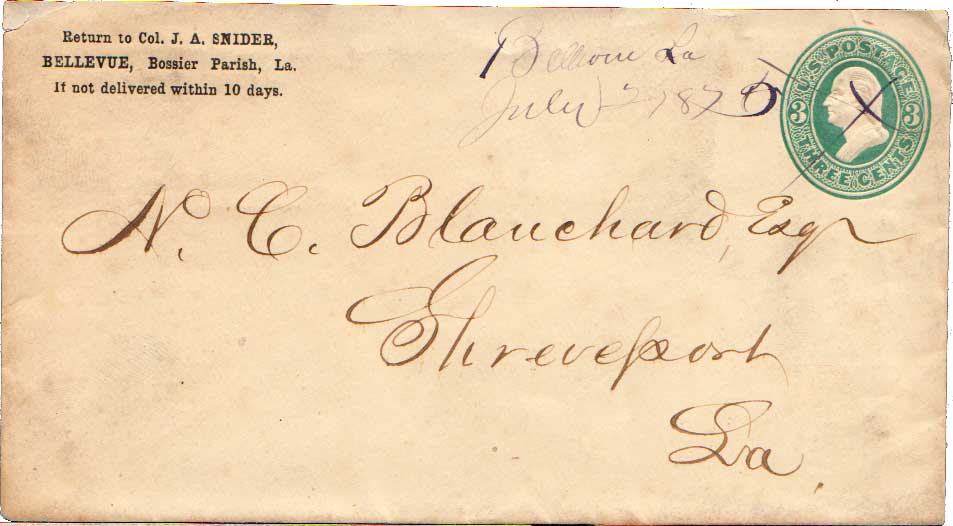 Return to Col. J. A. SNIDER,
BELLEVUE, Bossier Parish, La.
If not delivered within 10 days.
Bellvue La
July 2 1875
U.S. POSTAGE
3 3
THREE CENTS
N. C. Blanchard, Esqr
Shreveport
La.